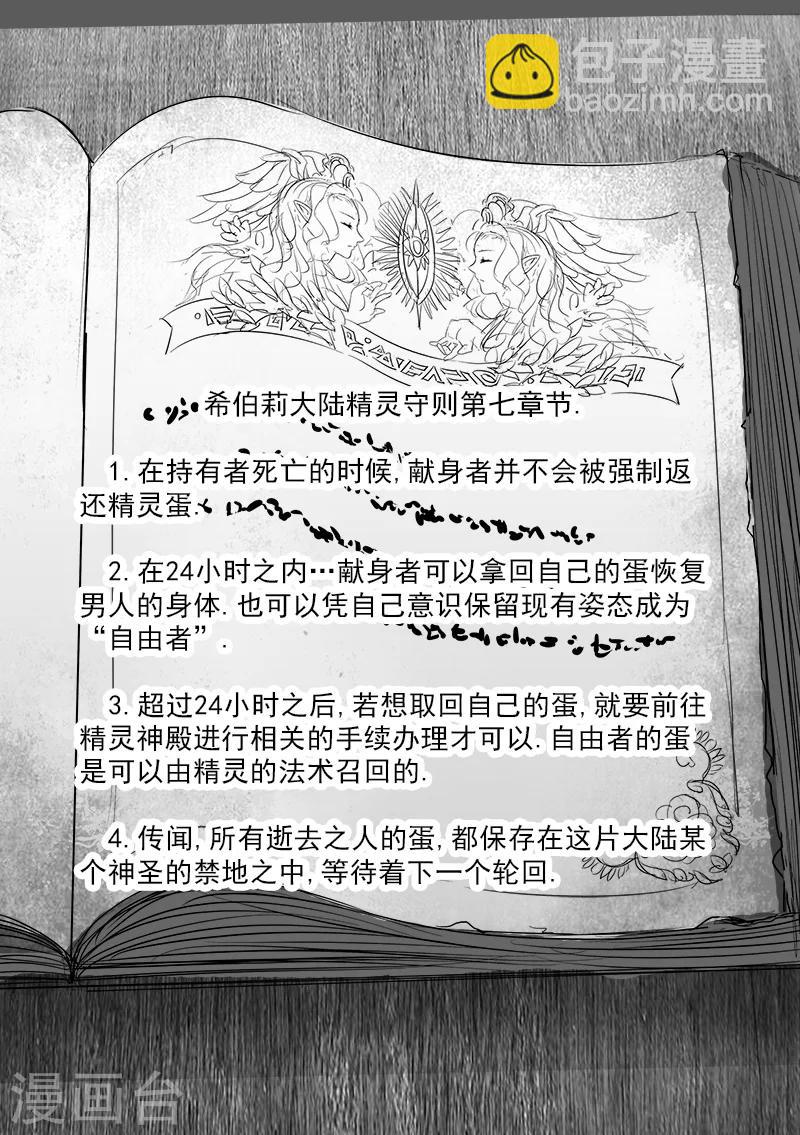 包子漫畫
baozimh.com
希伯莉大陆精灵守则第七章节.
1.在持有者死亡的时候,献身者并不会被强制返
还精灵蛋.
2.在24小时之内…献身者可以拿回自己的蛋恢复
男人的身体.也可以凭自己意识保留现有姿态成为
“自由者”.
3.超过24小时之后,若想取回自己的蛋,就要前往
精灵神殿进行相关的手续办理才可以.自由者的蛋
是可以由精灵的法术召回的.
4.传闻,所有逝去之人的蛋,都保存在这片大陆某
个神圣的禁地之中,等待着下一个轮回.
漫画台